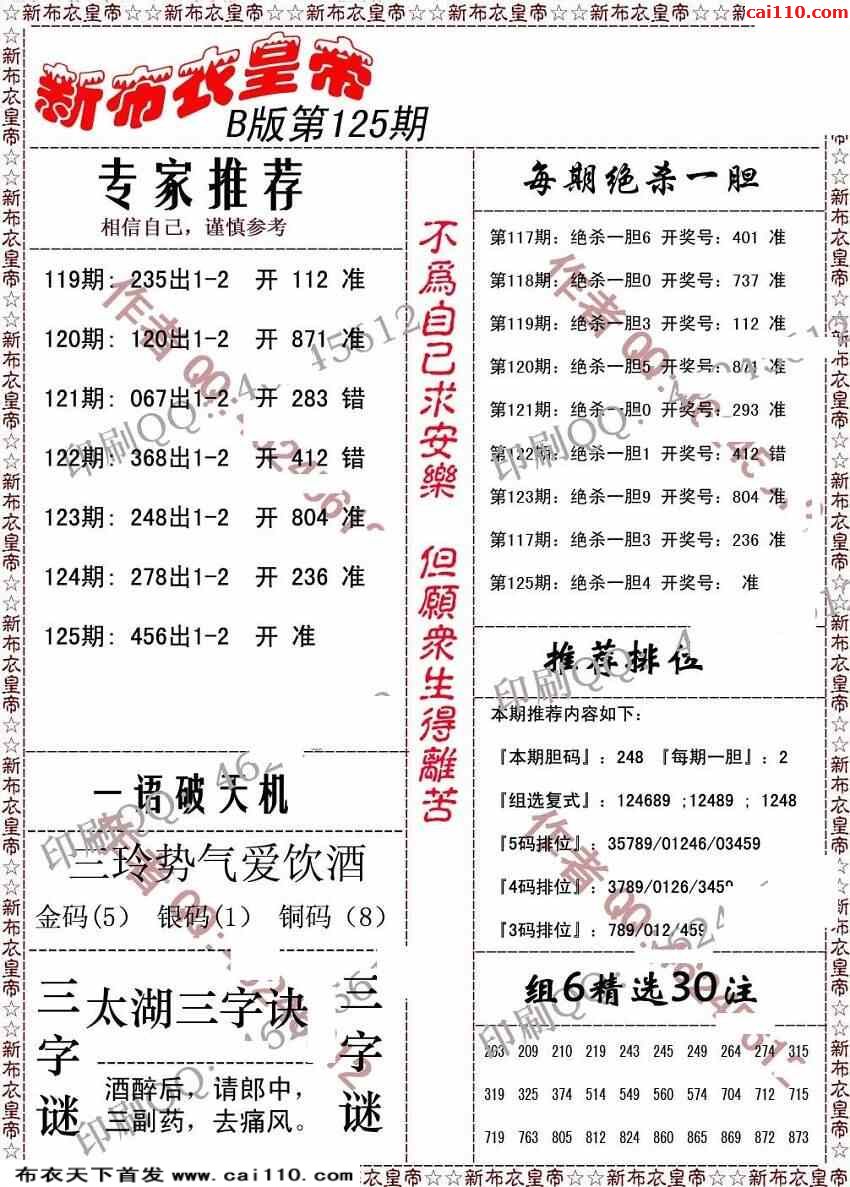 ☆☆新布衣皇帝☆☆新布衣皇帝☆☆新布衣皇帝☆☆新布衣皇帝☆☆新布衣皇帝☆☆新
cai110.com
新布衣皇帝
B版第125期
专家推荐
相信自己，谨慎参考
119期: 235出1-2 开 112 准
120期: 120出1-2 开 871 准
121期: 067出1-2 开 283 错
122期: 368出1-2 开 412 错
123期: 248出1-2 开 804 准
124期: 278出1-2 开 236 准
125期: 456出1-2 开 准
一语破天机
三玲势气爱饮酒
金码(5) 银码(1) 铜码（8）
三字谜
太湖三字诀
酒醉后，请郎中，
三副药，去痛风。
三字谜
不爲自己求安樂 但願衆生得離苦
每期绝杀一胆
第117期: 绝杀一胆6 开奖号: 401 准
第118期: 绝杀一胆0 开奖号: 737 准
第119期: 绝杀一胆3 开奖号: 112 准
第120期: 绝杀一胆5 开奖号: 871 准
第121期: 绝杀一胆0 开奖号: 293 准
第122期: 绝杀一胆1 开奖号: 412 错
第123期: 绝杀一胆9 开奖号: 804 准
第117期: 绝杀一胆3 开奖号: 236 准
第125期: 绝杀一胆4 开奖号: 准
推荐排位
本期推荐内容如下:
『本期胆码』: 248 『每期一胆』: 2
『组选复式』: 124689 ;12489 ; 1248
『5码排位』: 35789/01246/03459
『4码排位』: 3789/0126/3459
『3码排位』: 789/012/459
组6精选30注
203 209 210 219 243 245 249 264 274 315
319 325 374 514 549 560 574 704 712 715
719 763 805 812 824 860 865 869 872 873
布衣天下首发 www.cai110.com
衣皇帝☆☆新布衣皇帝☆☆新布衣皇帝☆☆新布衣皇帝☆☆
作者QQ:
印刷QQ: